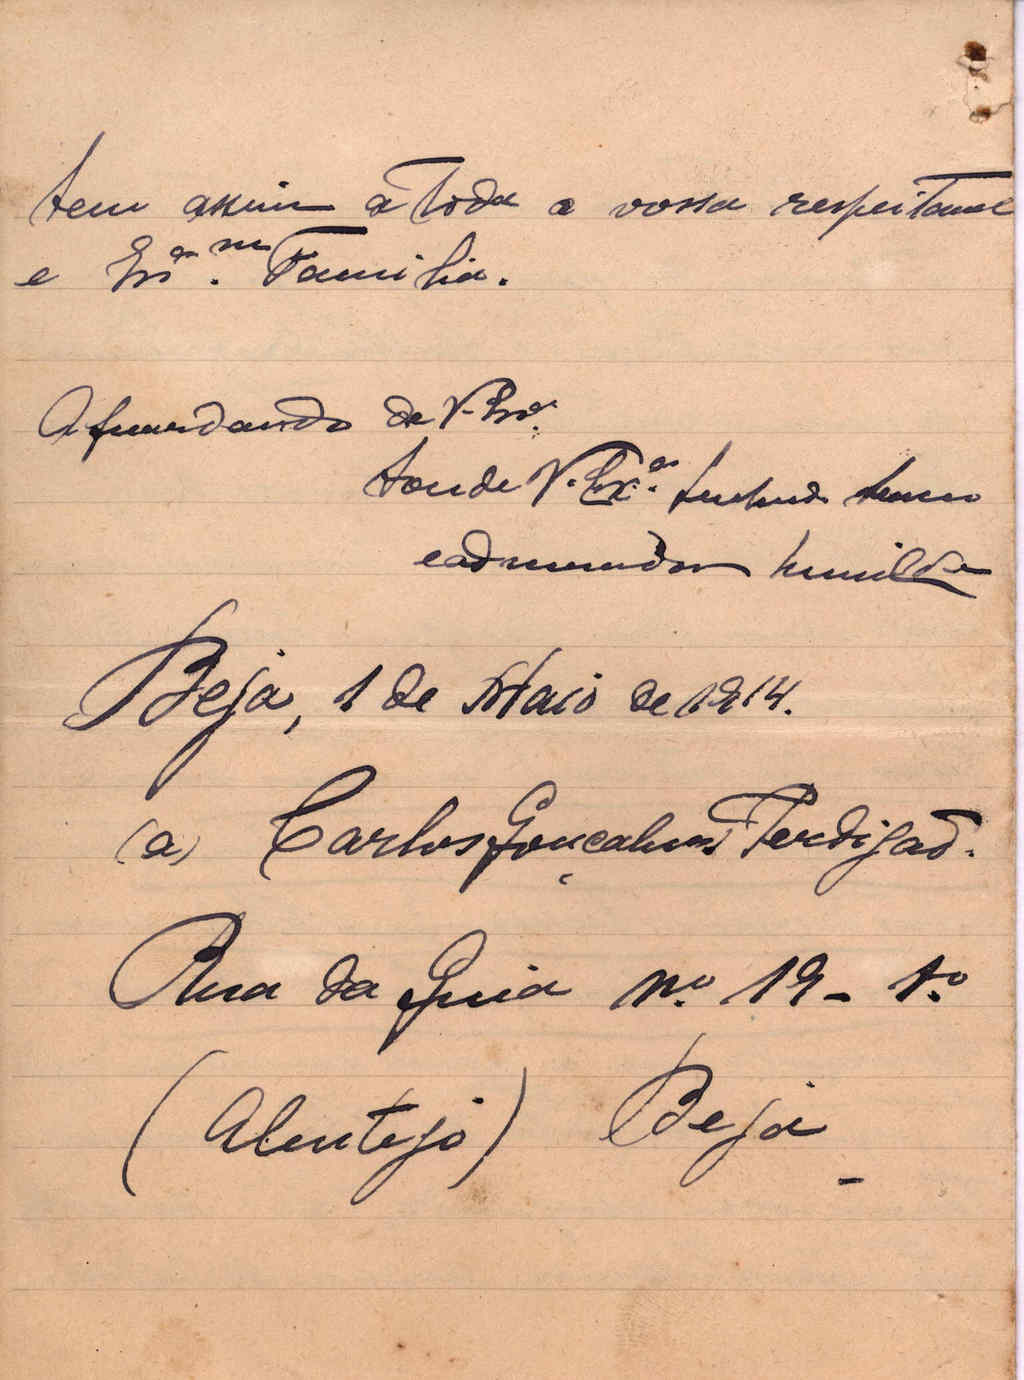 tem assim a toda a vossa respeitavel
e Exª.ma Familia.
Aguardando de V. Exª.
de V. Exª.
e admirador humilde
Beja, 1 de Maio de 1914.
(a) Carlos Gonçalves Perdigão.
Rua da Guia nº 19 - 1.º
(Alentejo) Beja